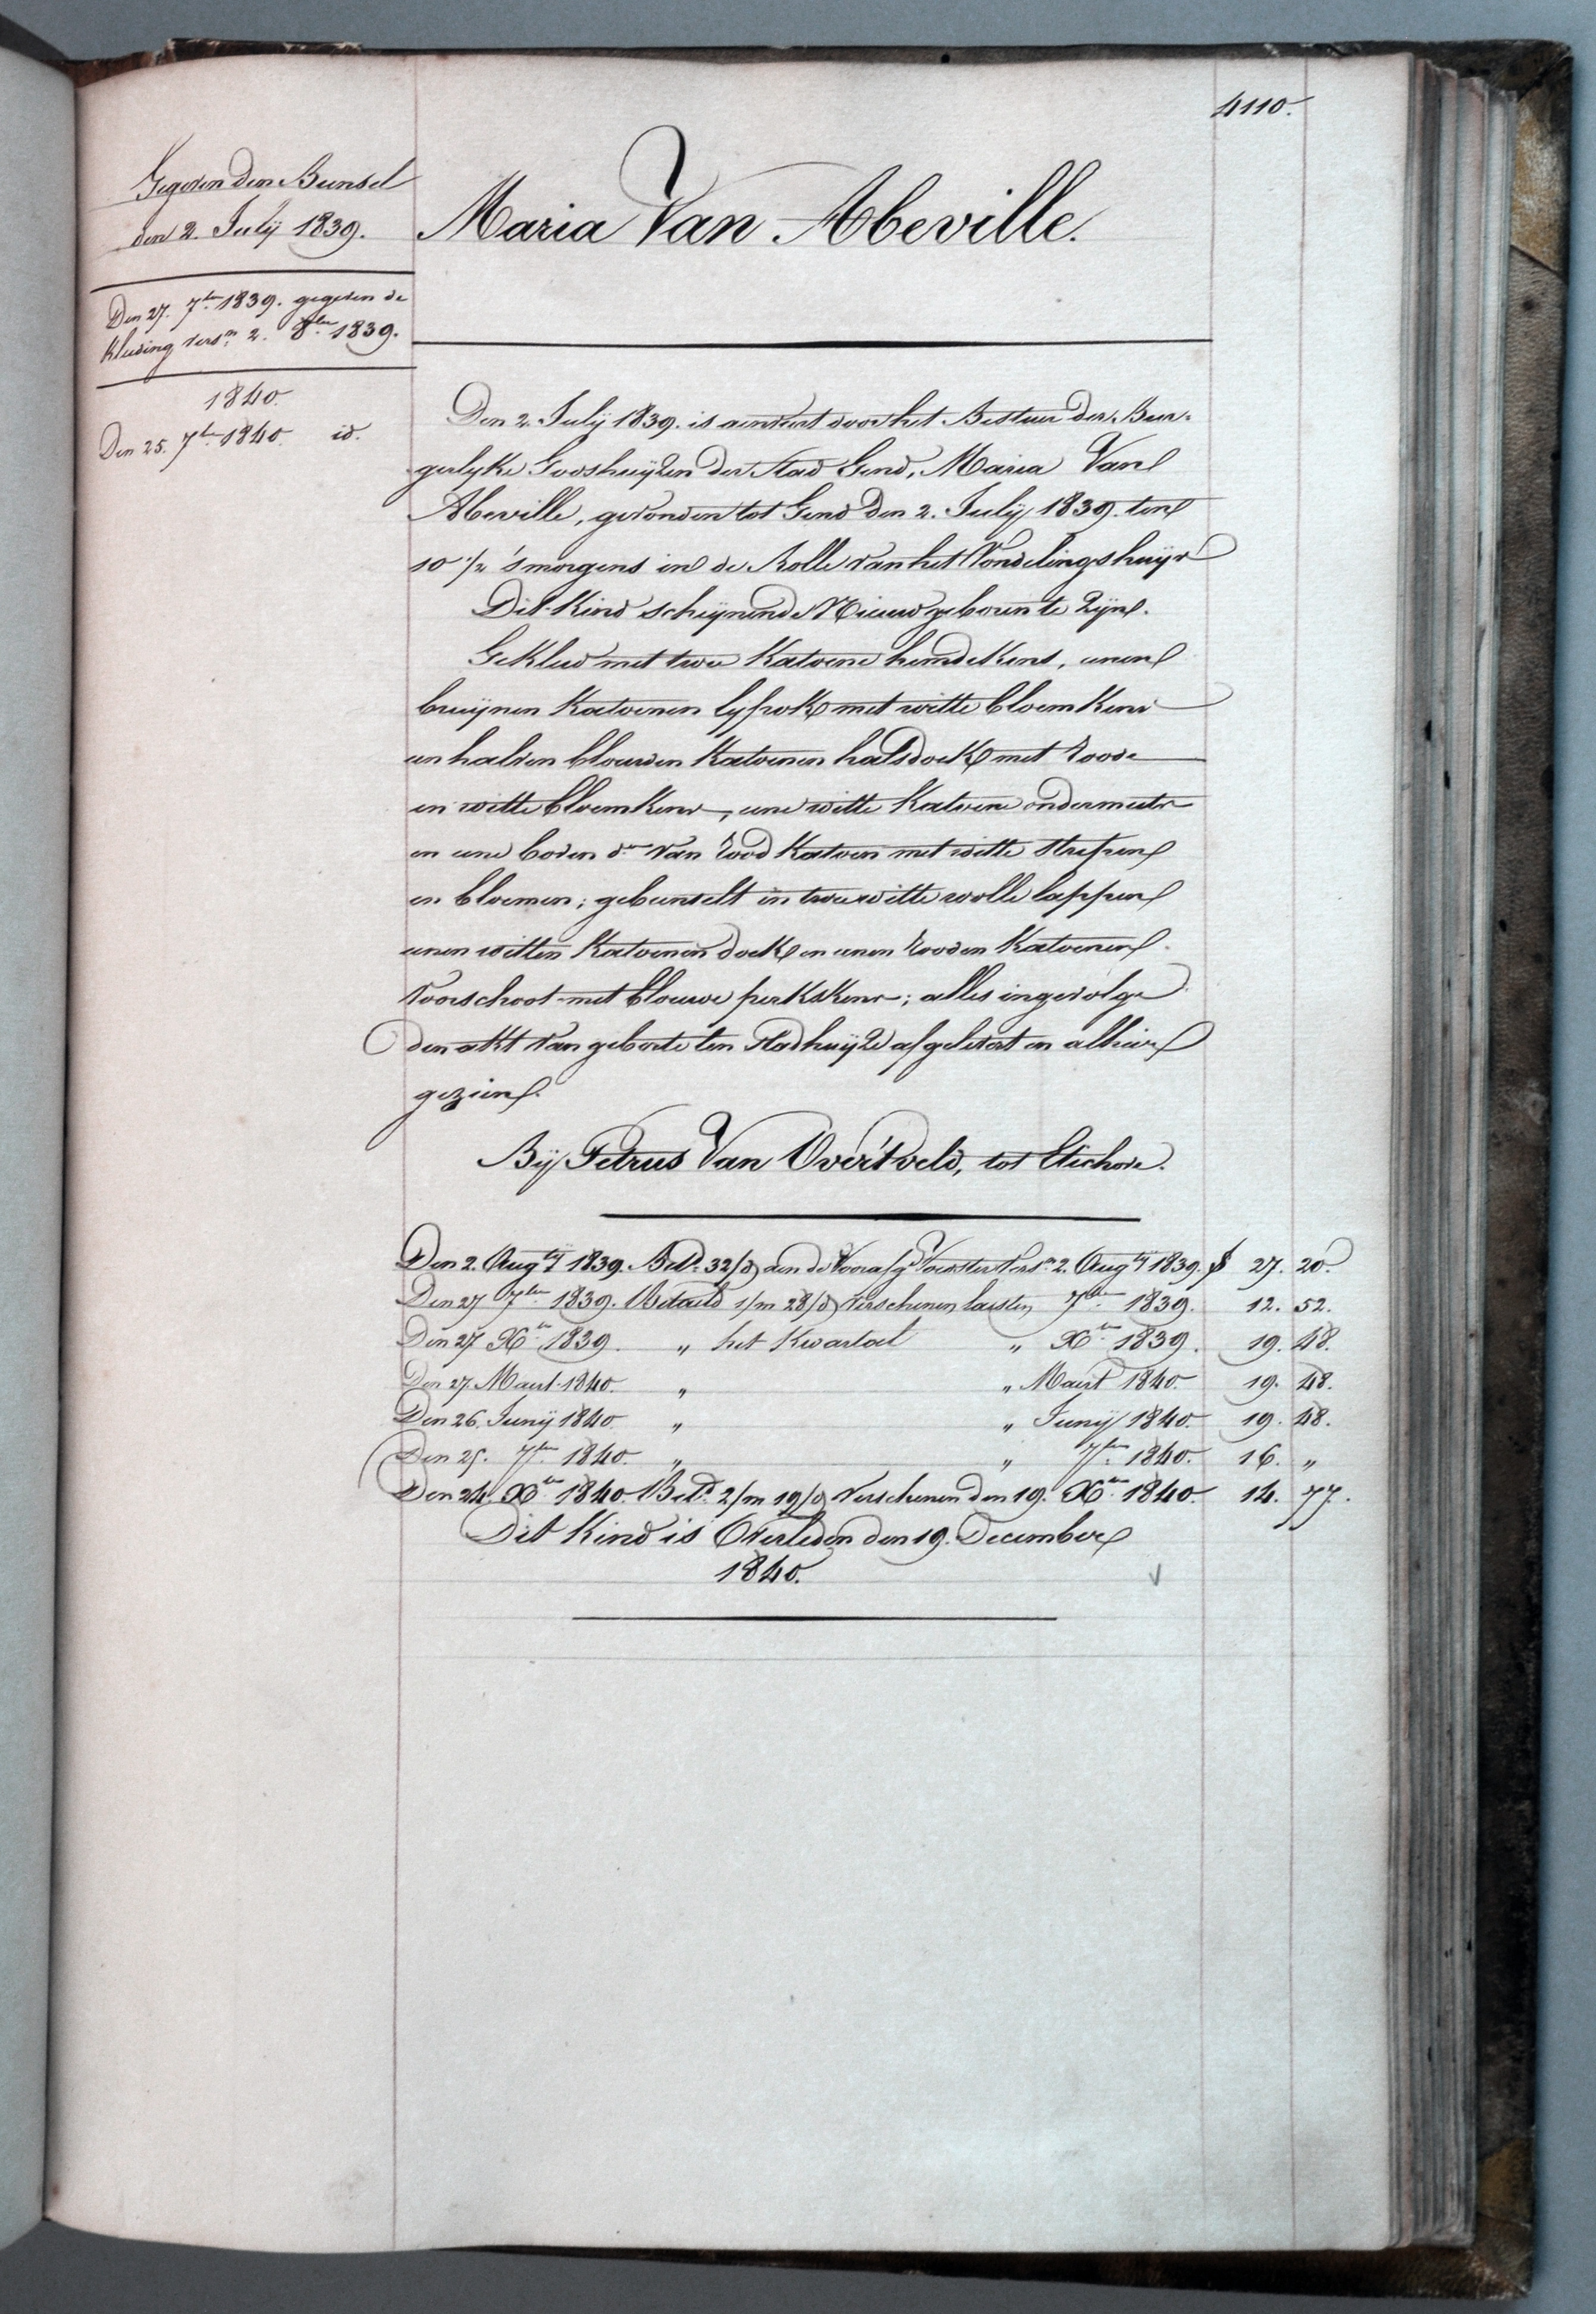 4110.
Gegeven den Bunsel
den 2. July 1839.
Den 27. 7ber 1839. gegeven de
kleeding versn 2. 8ber 1839.
1840.
Den 25. 7ber 1840. id.
Maria Van Abeville.
Den 2. July 1839. is aenveert door het Bestuer der Bur-
gerlyke Godshuyzen der Stad Gend, Maria Van
Abeville, gevonden tot Gend den 2. July 1839. ten
10 1/2 's morgens in de Rolle van het Vondelingshuys
Dit Kind schynende Nieuw geboren te Zyn.
Gekleed met twee Katoene hemdekens, eenen
bruynen Katoenen lyfrok met witte bloemkens
en halven blauwen Katoenen halsdoek met roode
en witte bloemkens, eene witte Katoene ondermuts
en eene boven do van rood Katoen met witte strepen
en bloemen; gebunselt in twee witte wolle lappen
eenen witten Katoenen doek en eenen rooden Katoenen
voorschoot met blauwe perkskens; alles ingevolge
den akt van geboorte ten Stadhuyze afgelevert en alhier
gezien.
By Petrus Van Overtveld, tot Etichove.
Den 2. Augty 1839. Betd 32/d aen de Voorafgd Voedster versn 2. Augty 1839. f 27. 20.
Den 27 7ber 1839. Betaeld 1/m 28/d verschenen laesten 7ber 1839. 12. 52.
Den 27 Xber 1839. " het Kwartael " Xber 1839. 19. 48.
Den 27. Maert 1840. " " Maert 1840. 19. 48.
Den 26. Juny 1840 " " Juny 1840. 19. 48.
Den 25. 7ber 1840. " " 7ber 1840. 16. "
Den 24. Xber 1840. Betd 2/m 19/d Verschenen den 19. Xber 1840. 14. 77.
Dit Kind is Overleden den 19. December
1840.